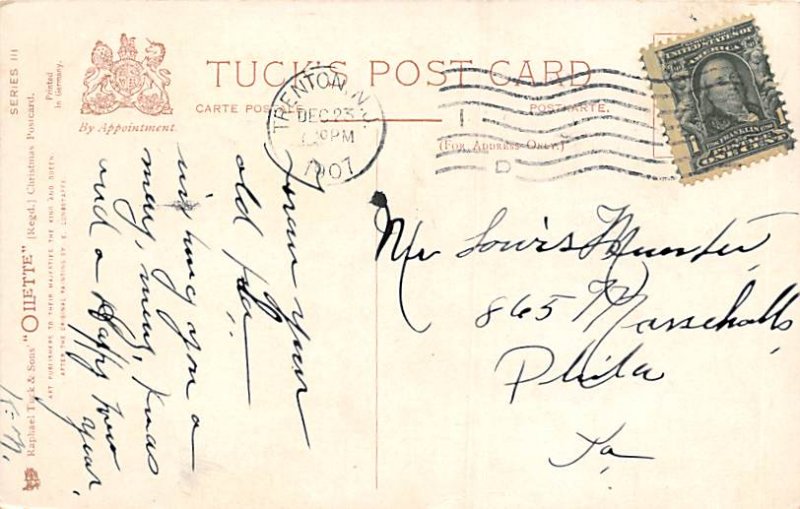 TUCK'S POST CARD
CARTE POSTALE
POSTKARTE.
(FOR ADDRESS ONLY.)
By Appointment
SERIES III
Printed
in Germany.
Raphael Tuck & Sons' "OILETTE" (Regd.) Christmas Postcard.
ART PUBLISHERS TO THEIR MAJESTIES THE KING AND QUEEN.
AFTER THE ORIGINAL PAINTING BY
TRENTON, N.J.
DEC 23
PM
1907
1
D
UNITED STATES OF
AMERICA
FRANKLIN
1 ONE CENT 1
From your
old
wishing you a
merry, merry, Xmas
and a Happy New
year,
Mr Louis Munster
865 Marschalls
Phila
Pa